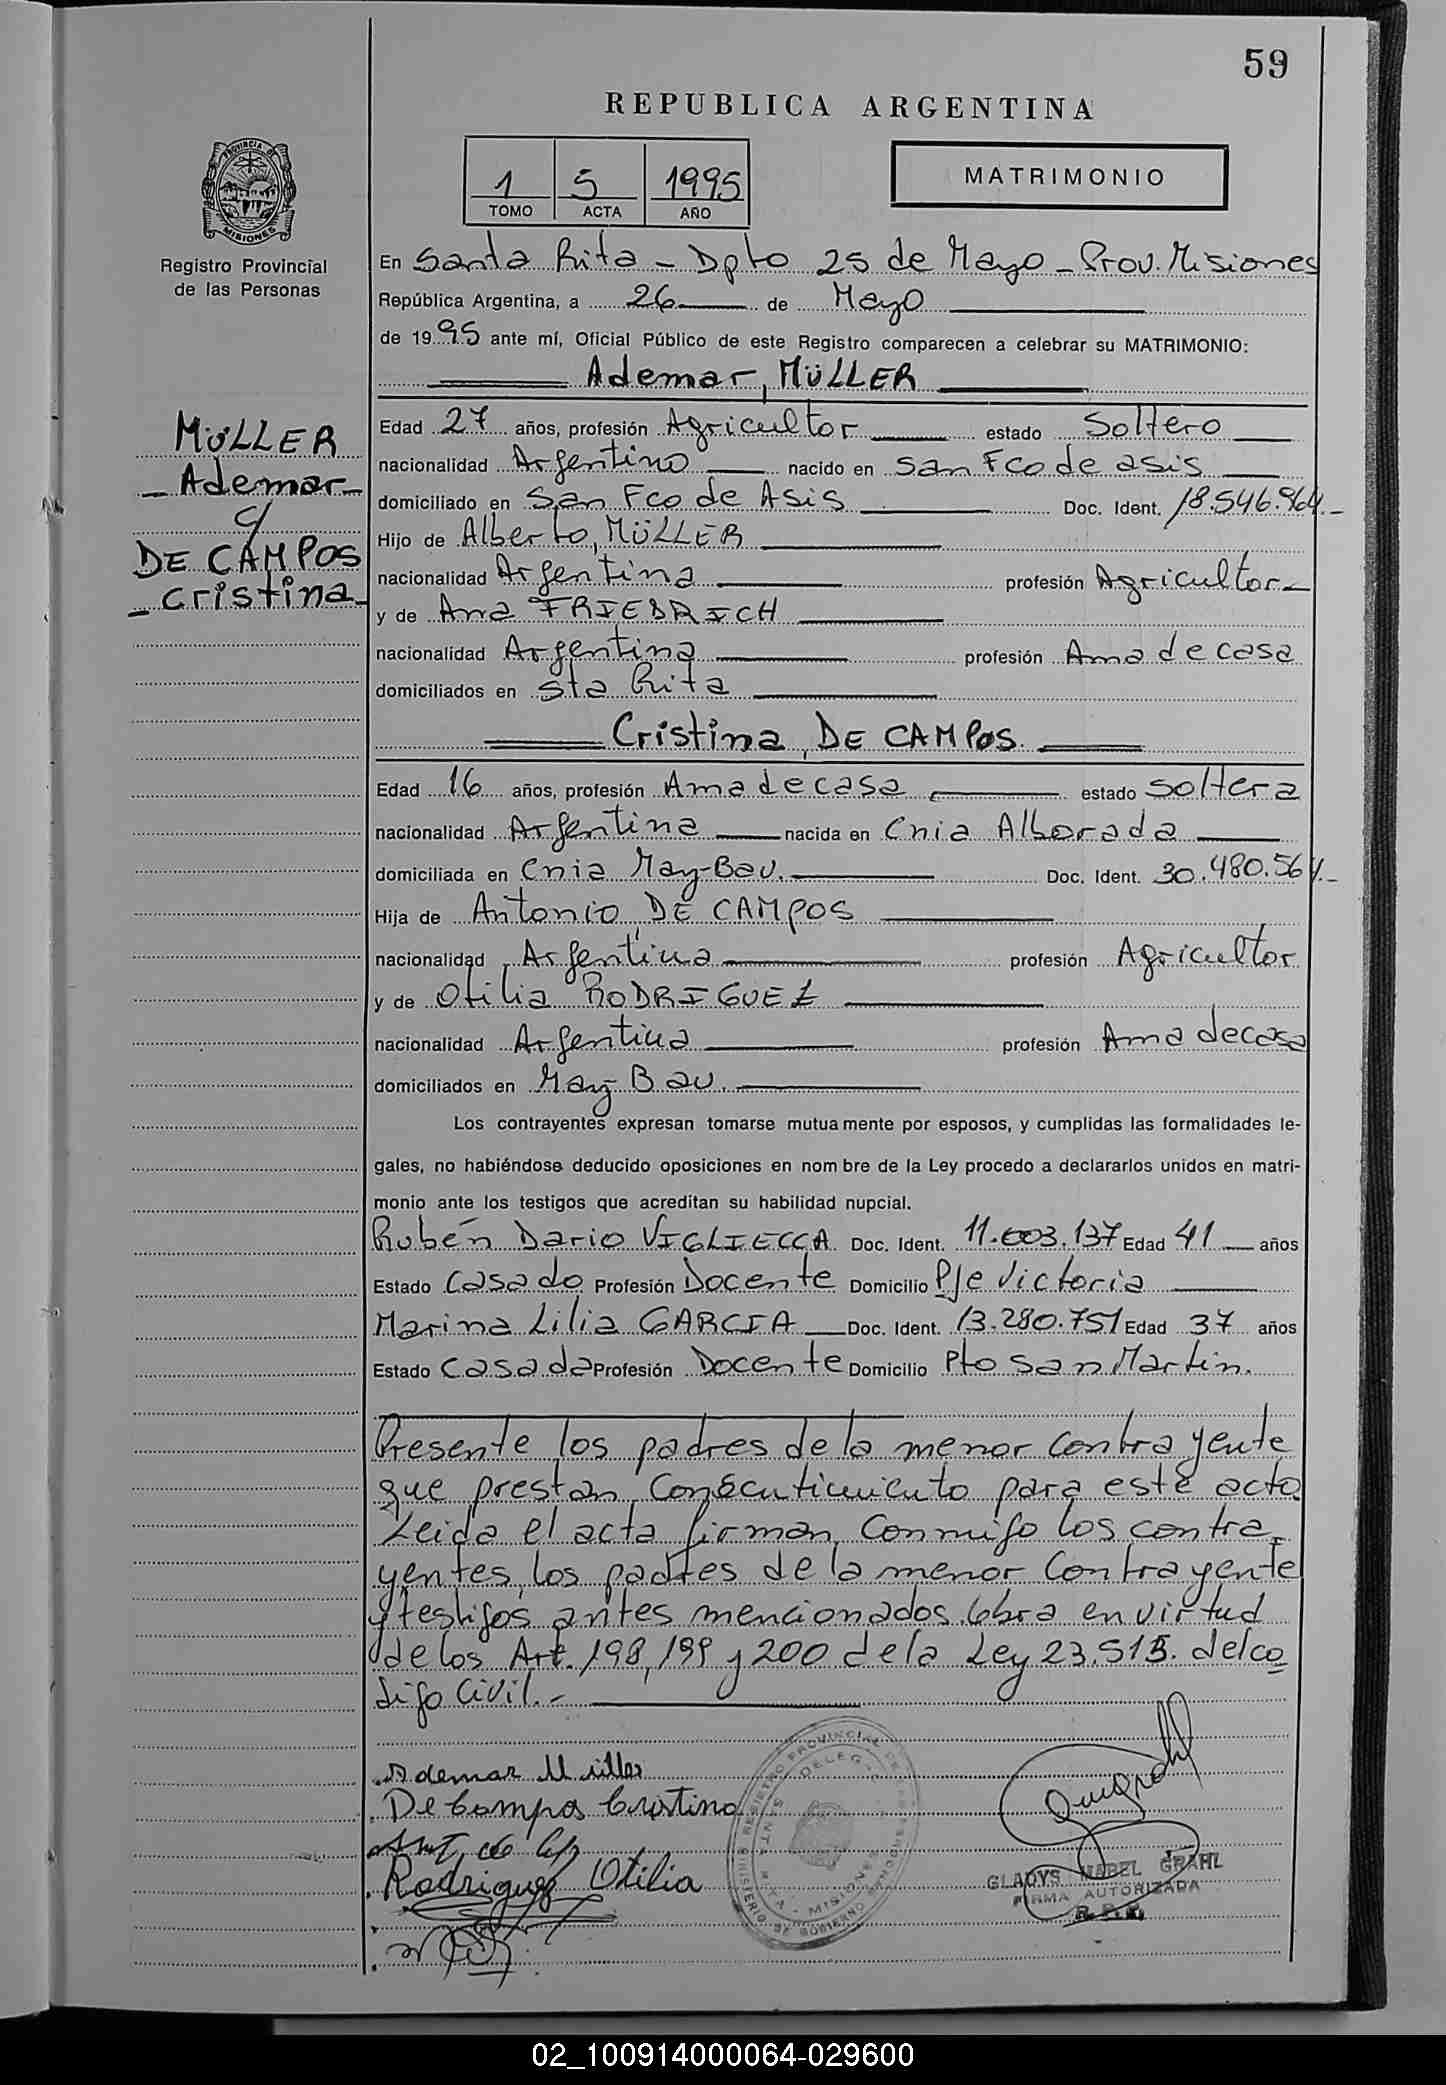 59
REPUBLICA ARGENTINA
PROVINCIA DE MISIONES
Registro Provincial
de las Personas
1 5 1995
TOMO ACTA AÑO
MATRIMONIO
En Santa Rita - Dpto 25 de Mayo - Prov. Misiones
República Argentina, a 26 de Mayo
de 1995 ante mí, Oficial Público de este Registro comparecen a celebrar su MATRIMONIO:
Ademar, MÜLLER
MÜLLER
- Ademar -
c/
DE CAMPOS
- Cristina -
Edad 27 años, profesión Agricultor estado Soltero
nacionalidad Argentino nacido en San Fco de asis
domiciliado en San Fco de Asis Doc. Ident. 18.546.964.-
Hijo de Alberto, MÜLLER
nacionalidad Argentina profesión Agricultor -
y de Ana FRIEDRICH
nacionalidad Argentina profesión Ama de casa
domiciliados en Sta Rita
Cristina, DE CAMPOS.
Edad 16 años, profesión Ama de casa estado Soltera
nacionalidad Argentina nacida en Cnia Alborada
domiciliada en Cnia May-Bau. Doc. Ident. 30.480.561.-
Hija de Antonio, DE CAMPOS
nacionalidad Argentina profesión Agricultor
y de Otilia RODRIGUEZ
nacionalidad Argentina profesión Ama de casa
domiciliados en May-Bau.
Los contrayentes expresan tomarse mutuamente por esposos, y cumplidas las formalidades le-
gales, no habiéndose deducido oposiciones en nombre de la Ley procedo a declararlos unidos en matri-
monio ante los testigos que acreditan su habilidad nupcial.
Rubén Dario VIGLIECCA Doc. Ident. 11.003.137 Edad 41 años
Estado Casado Profesión Docente Domicilio Pje Victoria
Marina Lilia GARCIA Doc. Ident. 13.280.751 Edad 37 años
Estado Casada Profesión Docente Domicilio Pto San Martin.
Presente los padres de la menor contrayente
que prestan consentimiento para este acto
Leida el acta firman conmigo los contra-
yentes, los padres de la menor contrayente
y testigos antes mencionados. Obra en virtud
de los Art. 198, 199 y 200 de la Ley 23.515. del co
digo Civil.-
Ademar Müller
De Campos Cristina
Rodriguez Otilia
GLADYS MABEL GRAHL
FIRMA AUTORIZADA
R. P. P.
02_100914000064-029600